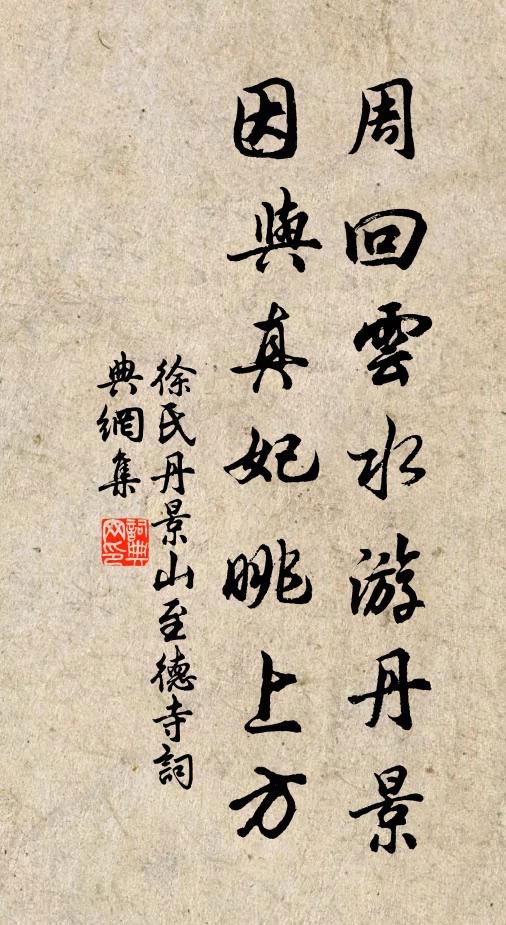 周回雲水游丹景
因與真妃眺上方
徐氏丹景山至德寺詞
典網集
詞典網印